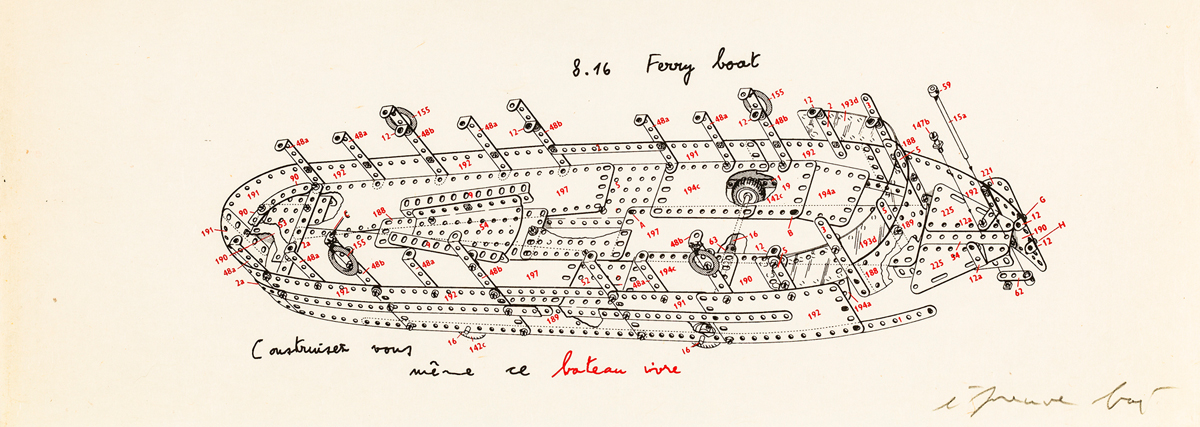 8.16 Ferry boat
155
59
48a
48a
12
48b
48a
12
48b
48a
48a
155
12
48b
12
2
193d
3
147b
15a
188
5
191
90
192
192
2
191
192
221
90
197
5
194c
19
142c
194a
192
G
191
188
54
A
197
B
3
5
189
225
12a
12
190
H
190
2a
155
48b
63
16
12
193d
94
12
48a
48a
48b
48a
48b
197
52
48a
194c
190
5
188
225
12a
62
2a
192
192
189
191
192
194a
1
16
142c
16
Construisez vous
même ce bateau ivre
épreuve